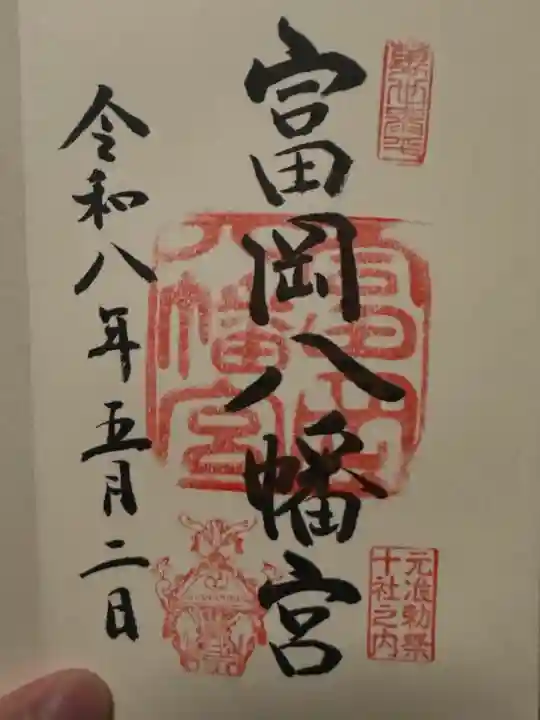 富岡八幡宮
富岡
八幡宮
元准勅祭
十社之内
令和八年五月二日